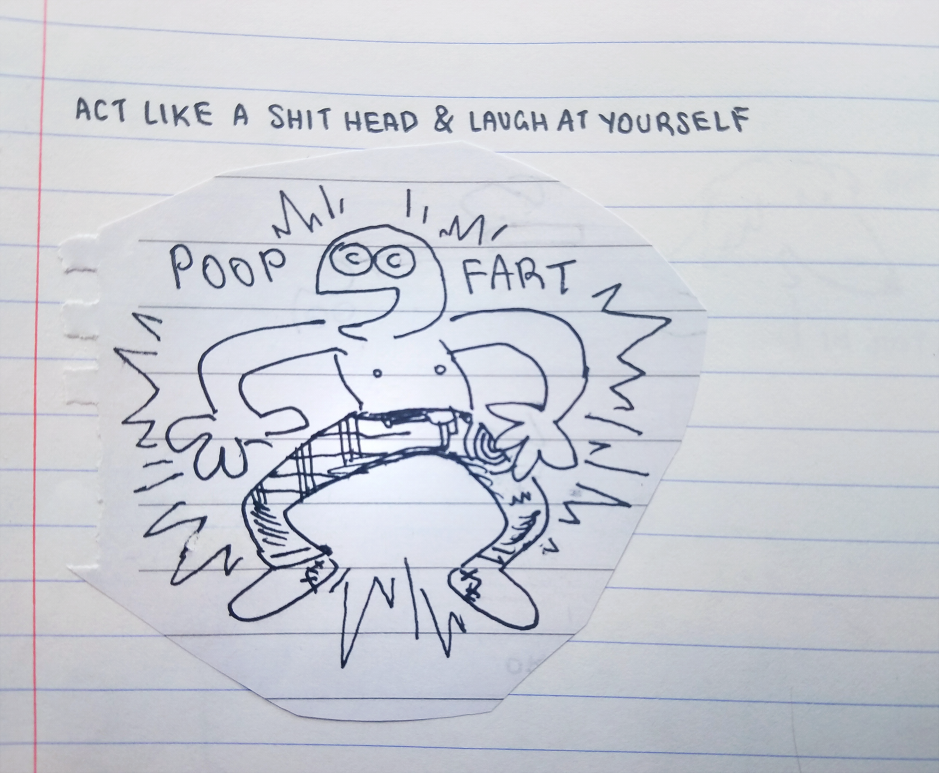 ACT LIKE A SHIT HEAD & LAUGH AT YOURSELF
POOP FART